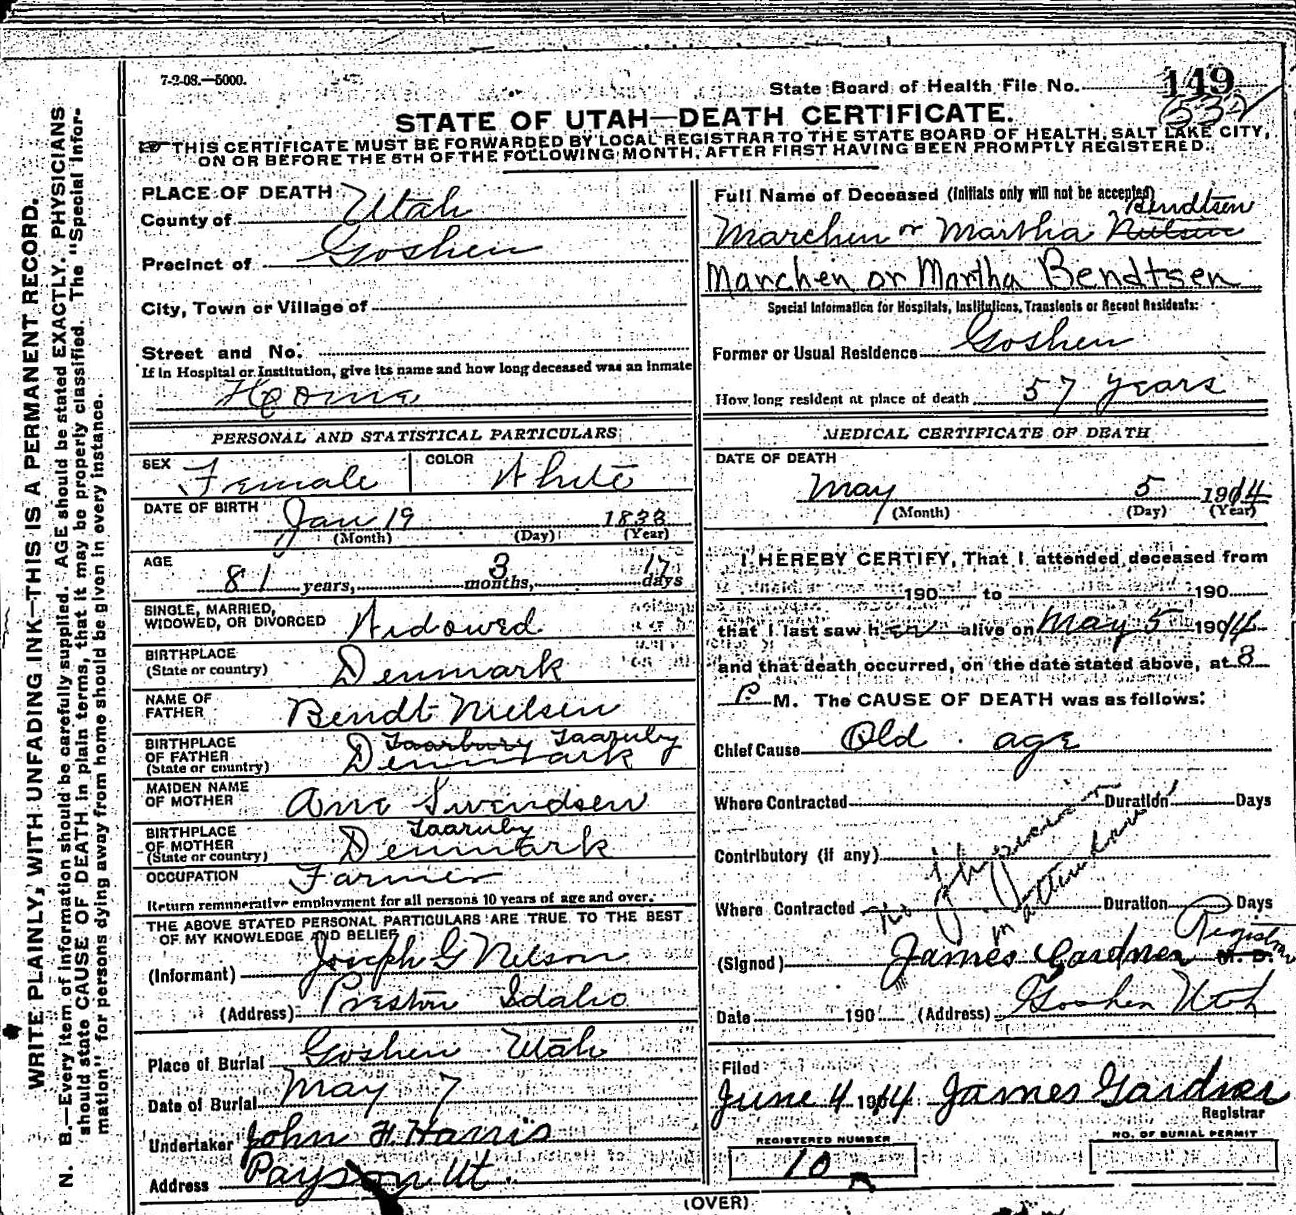 7-2-08.—5000.
State Board of Health File No. 149
STATE OF UTAH—DEATH CERTIFICATE.
THIS CERTIFICATE MUST BE FORWARDED BY LOCAL REGISTRAR TO THE STATE BOARD OF HEALTH, SALT LAKE CITY,
ON OR BEFORE THE 5TH OF THE FOLLOWING MONTH, AFTER FIRST HAVING BEEN PROMPTLY REGISTERED.
PLACE OF DEATH
County of Utah
Precinct of Goshen
City, Town or Village of
Street and No.
If in Hospital or Institution, give its name and how long deceased was an inmate
Home
PERSONAL AND STATISTICAL PARTICULARS
SEX Female COLOR White
DATE OF BIRTH
Jan 19 1833
(Month) (Day) (Year)
AGE
81 years, 3 months, 17 days
SINGLE, MARRIED,
WIDOWED, OR DIVORCED Widowed
BIRTHPLACE
(State or country) Denmark
NAME OF
FATHER Bendt Nielsen
BIRTHPLACE
OF FATHER Taarnby
(State or country) Denmark
MAIDEN NAME
OF MOTHER Ane Swendsen
BIRTHPLACE
OF MOTHER Taarnby
(State or country) Denmark
OCCUPATION Farmer
Return remunerative employment for all persons 10 years of age and over.
THE ABOVE STATED PERSONAL PARTICULARS ARE TRUE TO THE BEST
OF MY KNOWLEDGE AND BELIEF
(Informant) Joseph G Nelson
(Address) Preston Idaho
Place of Burial Goshen Utah
Date of Burial May 7
Undertaker John H Harris
Address Payson Ut.
Full Name of Deceased (Initials only will not be accepted)
Bendtsen
Marchen or Martha
Marchen or Martha Bendtsen
Special Information for Hospitals, Institutions, Transients or Recent Residents:
Former or Usual Residence Goshen
How long resident at place of death 57 years
MEDICAL CERTIFICATE OF DEATH
DATE OF DEATH
May 5 1914
(Month) (Day) (Year)
I HEREBY CERTIFY, That I attended deceased from
190 to 190
that I last saw her alive on May 5 1914
and that death occurred, on the date stated above, at 8
P. M. The CAUSE OF DEATH was as follows:
Chief Cause Old age
Where Contracted Duration Days
Contributory (if any)
Where Contracted Duration Days
No Physician
in attendance
Registrar
(Signed) James Gardner M. D.
Date 190 (Address) Goshen Utah
Filed
June 4 1914 James Gardner
Registrar
REGISTERED NUMBER
10
NO. OF BURIAL PERMIT
(OVER)
WRITE PLAINLY, WITH UNFADING INK—THIS IS A PERMANENT RECORD.
N. B.—Every item of information should be carefully supplied. AGE should be stated EXACTLY. PHYSICIANS
should state CAUSE OF DEATH in plain terms, that it may be properly classified. The "Special Infor-
mation" for persons dying away from home should be given in every instance.